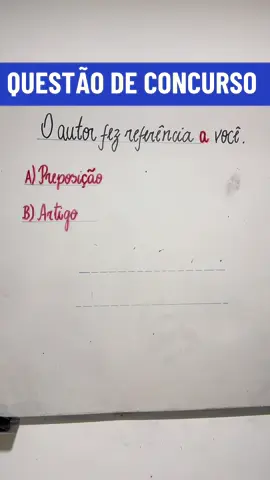 QUESTÃO DE CONCURSO
O autor fez referência a você.
A) Preposição
B) Artigo